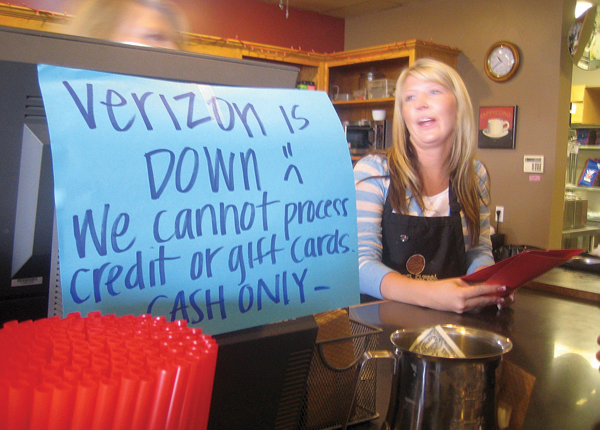 Verizon is
DOWN :(
We cannot process
credit or gift cards.
CASH ONLY-